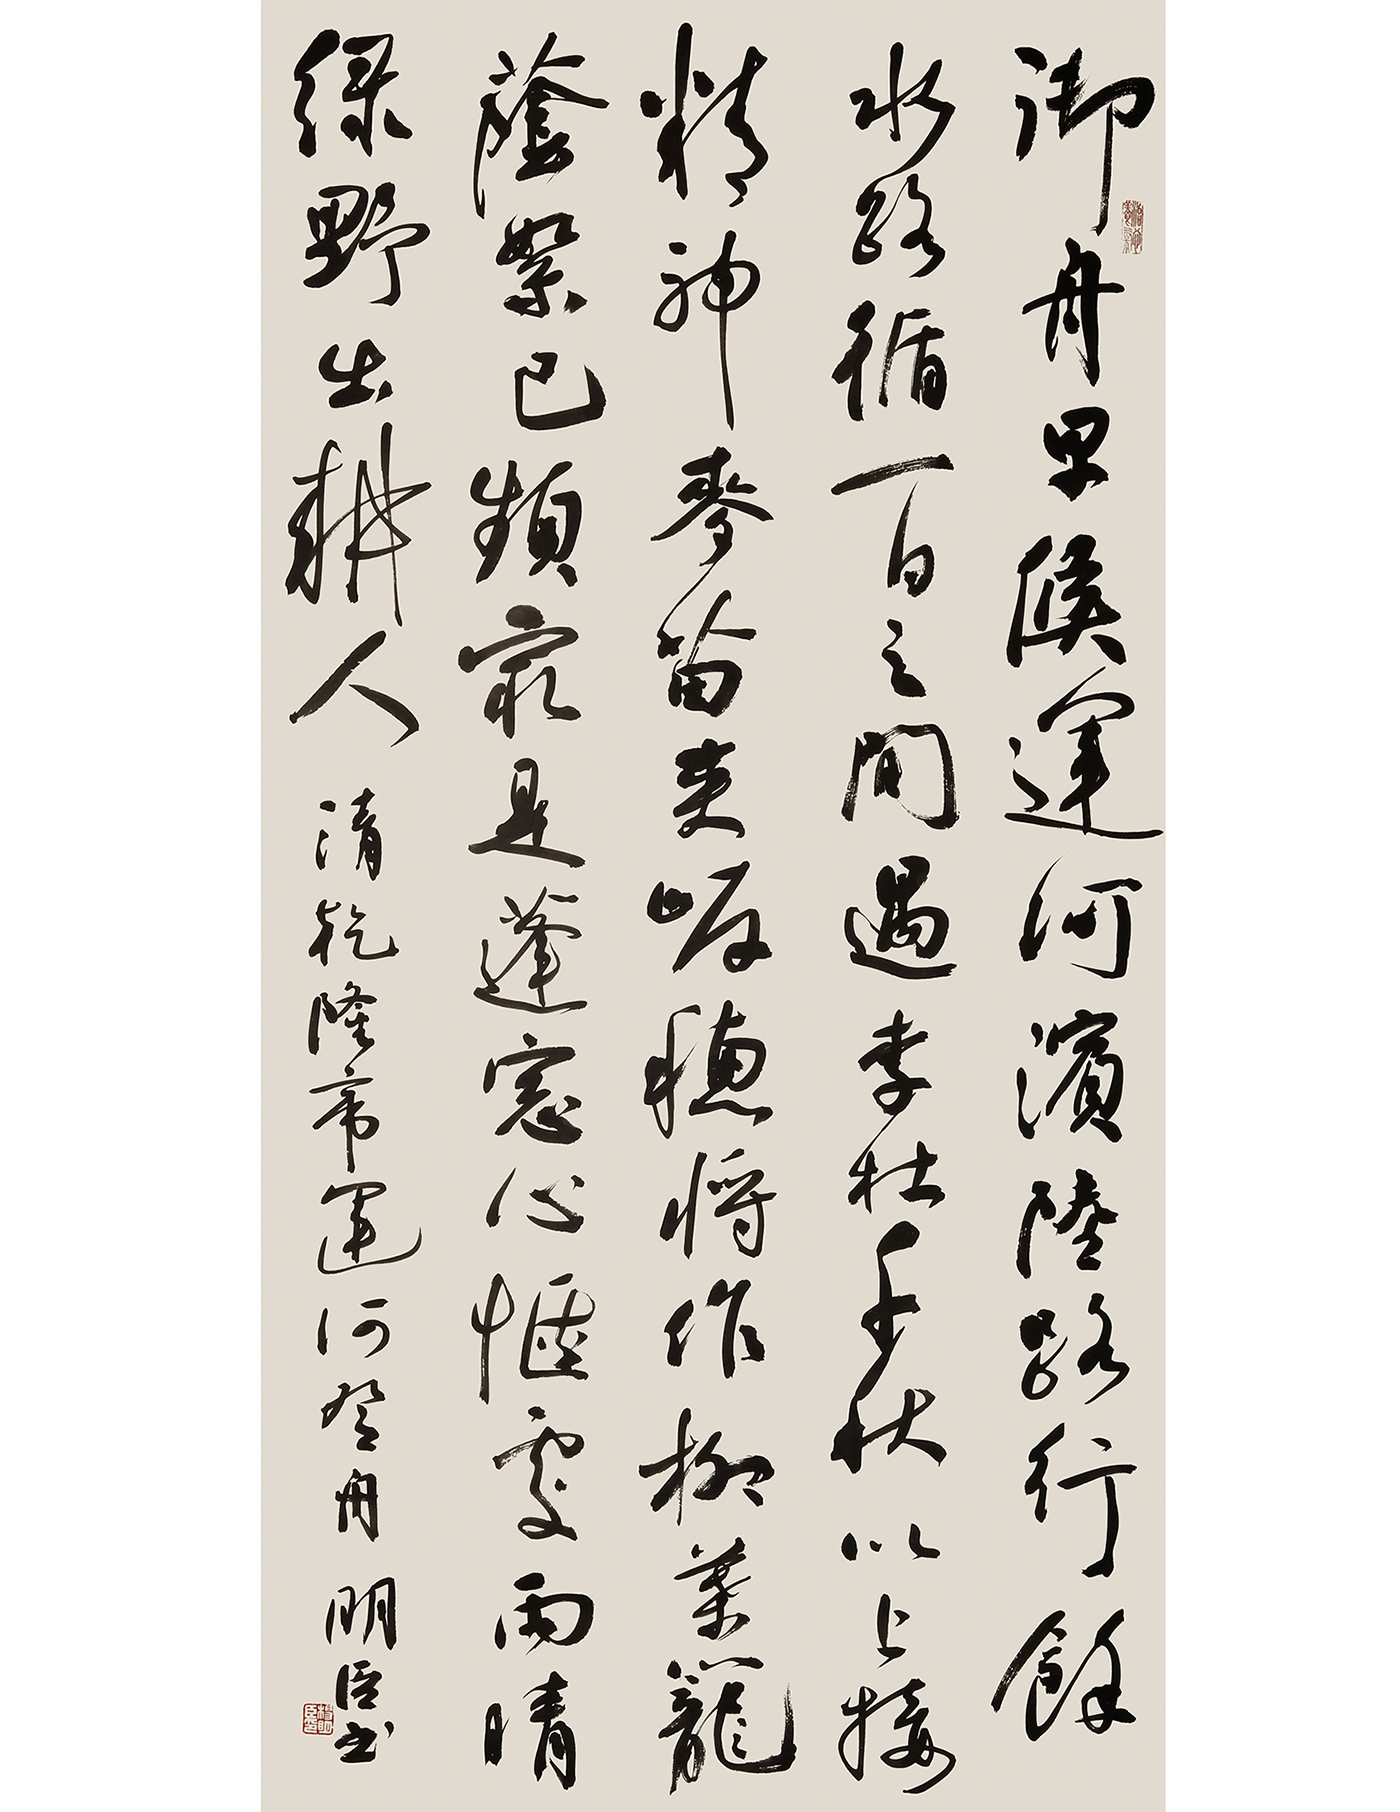 御舟早候運河濱陸路行餘
水路循一百之間遇李杜千秋以上接
精神麥苗夹岸穗将作柳葉籠
蔭絮已頻最是蓬窓心愜處雨晴
緑野出耕人 清乾隆帝運河登舟 明臣书